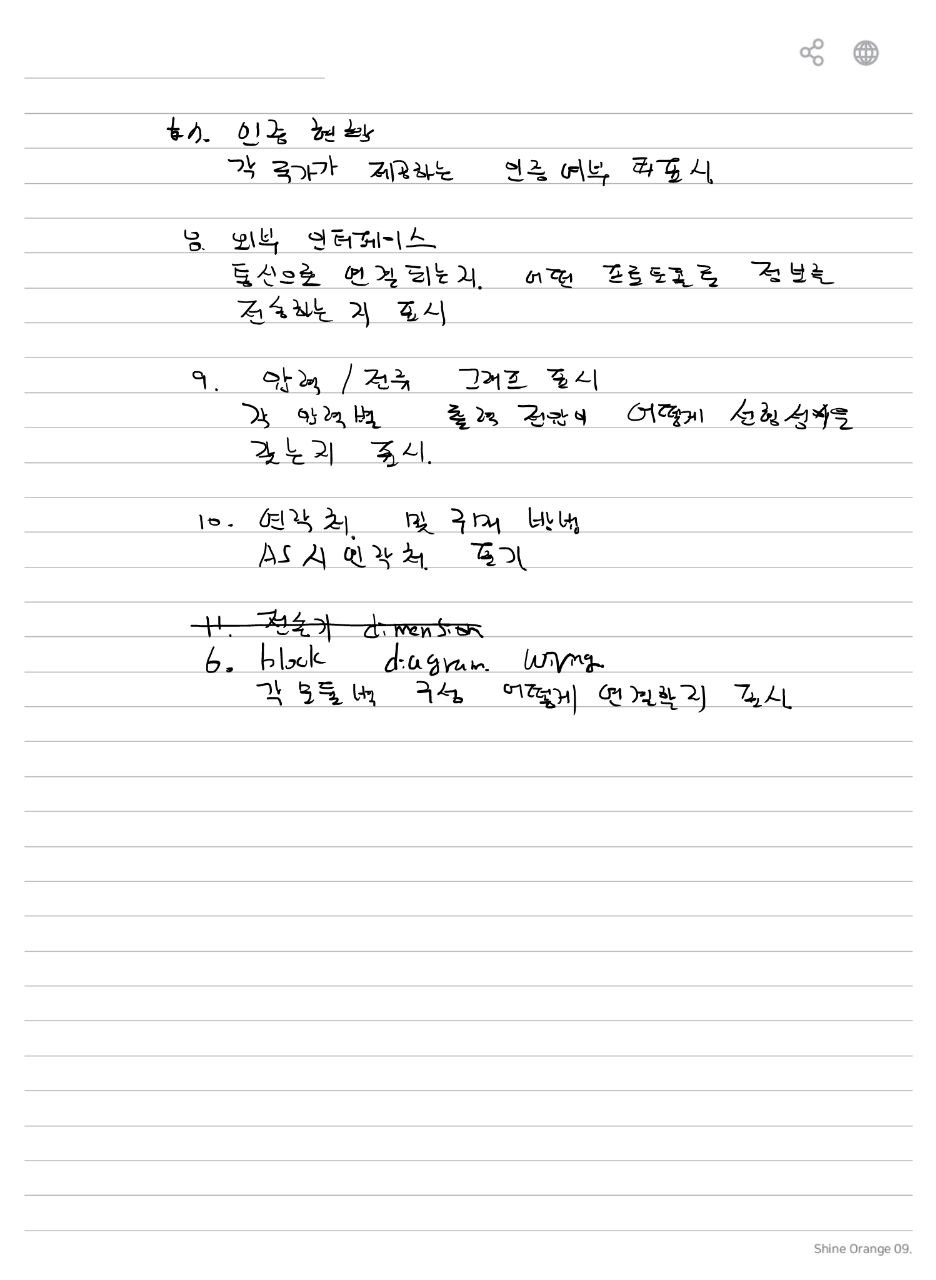 인증 현황
각 국가가 제공하는 인증여부 표시
8. 외부 인터페이스
통신으로 연결되는지. 어떤 프로토콜로 정보를
전송하는지 표시
9. 압력 / 전류 그래프 표시
각 압력별 출력 전압이 어떻게 선형성을
갖는지 표시.
10. 연락처. 및 구매 방법
AS시 연락처. 표기
11. 전송기 dimension
6. block diagram. wiring.
각 모듈별 구성 어떻게 연결할지 표시
Shine Orange 09.